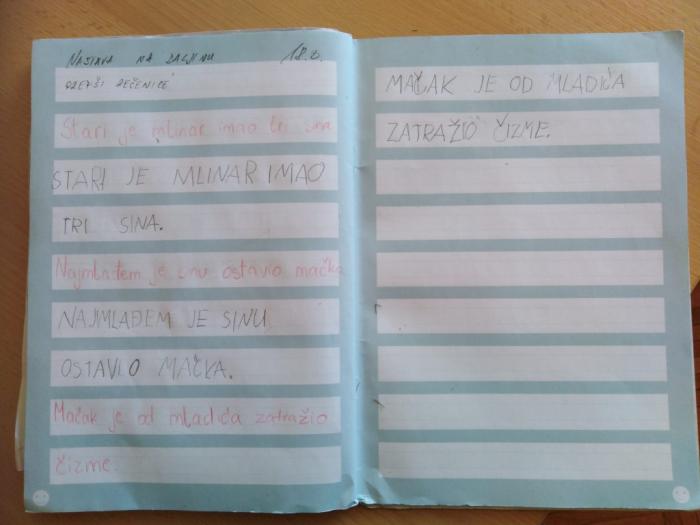 NASTAVA NA DALJINU 18.5.
PREPIŠI REČENICE
Stari je mlinar imao tri sina
STARI JE MLINAR IMAO
TRI SINA.
Najmlađem je sinu ostavio mačka
NAJMLAĐEM JE SINU
OSTAVIO MAČKA.
Mačak je od mladića zatražio
čizme.
MAČAK JE OD MLADIĆA
ZATRAŽIO ČIZME.